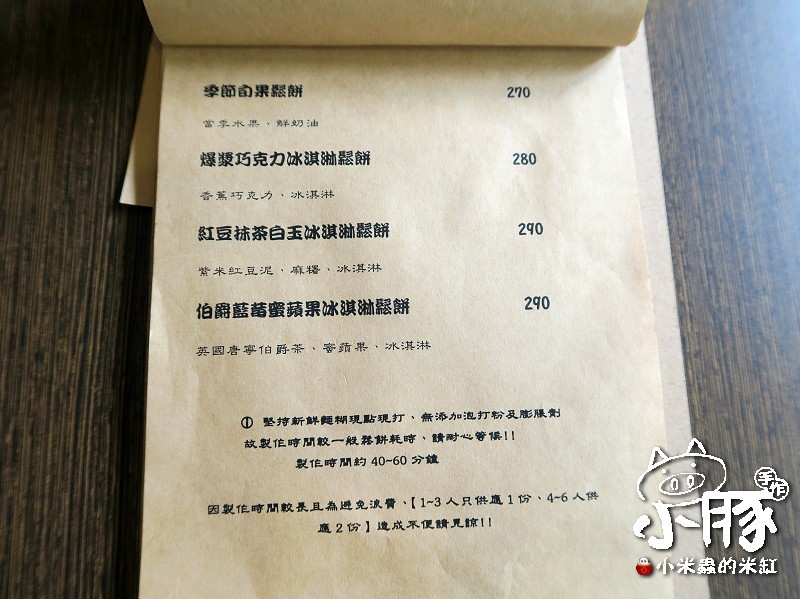 季節旬果鬆餅 270
當季水果、鮮奶油
爆漿巧克力冰淇淋鬆餅 280
香蕉巧克力、冰淇淋
紅豆抹茶白玉冰淇淋鬆餅 290
紫米紅豆泥、麻糬、冰淇淋
伯爵藍莓蜜蘋果冰淇淋鬆餅 290
英國唐寧伯爵茶、蜜蘋果、冰淇淋
① 堅持新鮮麵糊現點現打、無添加泡打粉及膨脹劑
故製作時間較一般鬆餅耗時、請耐心等候!!
製作時間約 40~60 分鐘
因製作時間較長且為避免浪費、【1~3 人只供應 1 份、4~6 人供
應 2 份】造成不便請見諒!!
手作
小豚
小米蟲的米缸